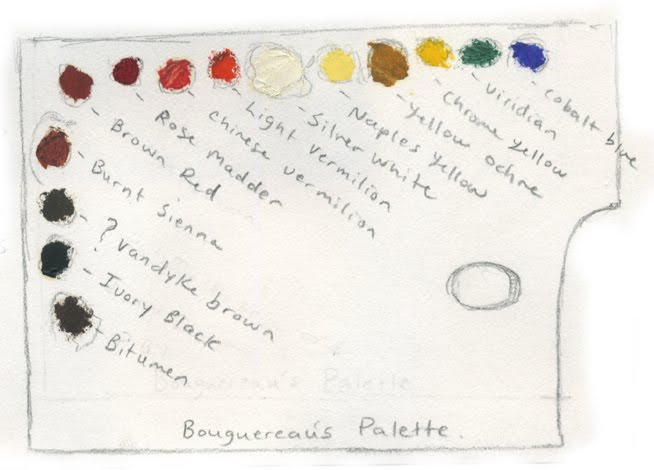 Brown Red
Rose Madder
Chinese vermilion
Light Vermilion
Silver White
Naples Yellow
Yellow Ochre
Chrome Yellow
Viridian
Cobalt blue
Burnt Sienna
? Vandyke brown
Ivory Black
Bitumen
Bouguereau's Palette
Bouguereau's Palette.